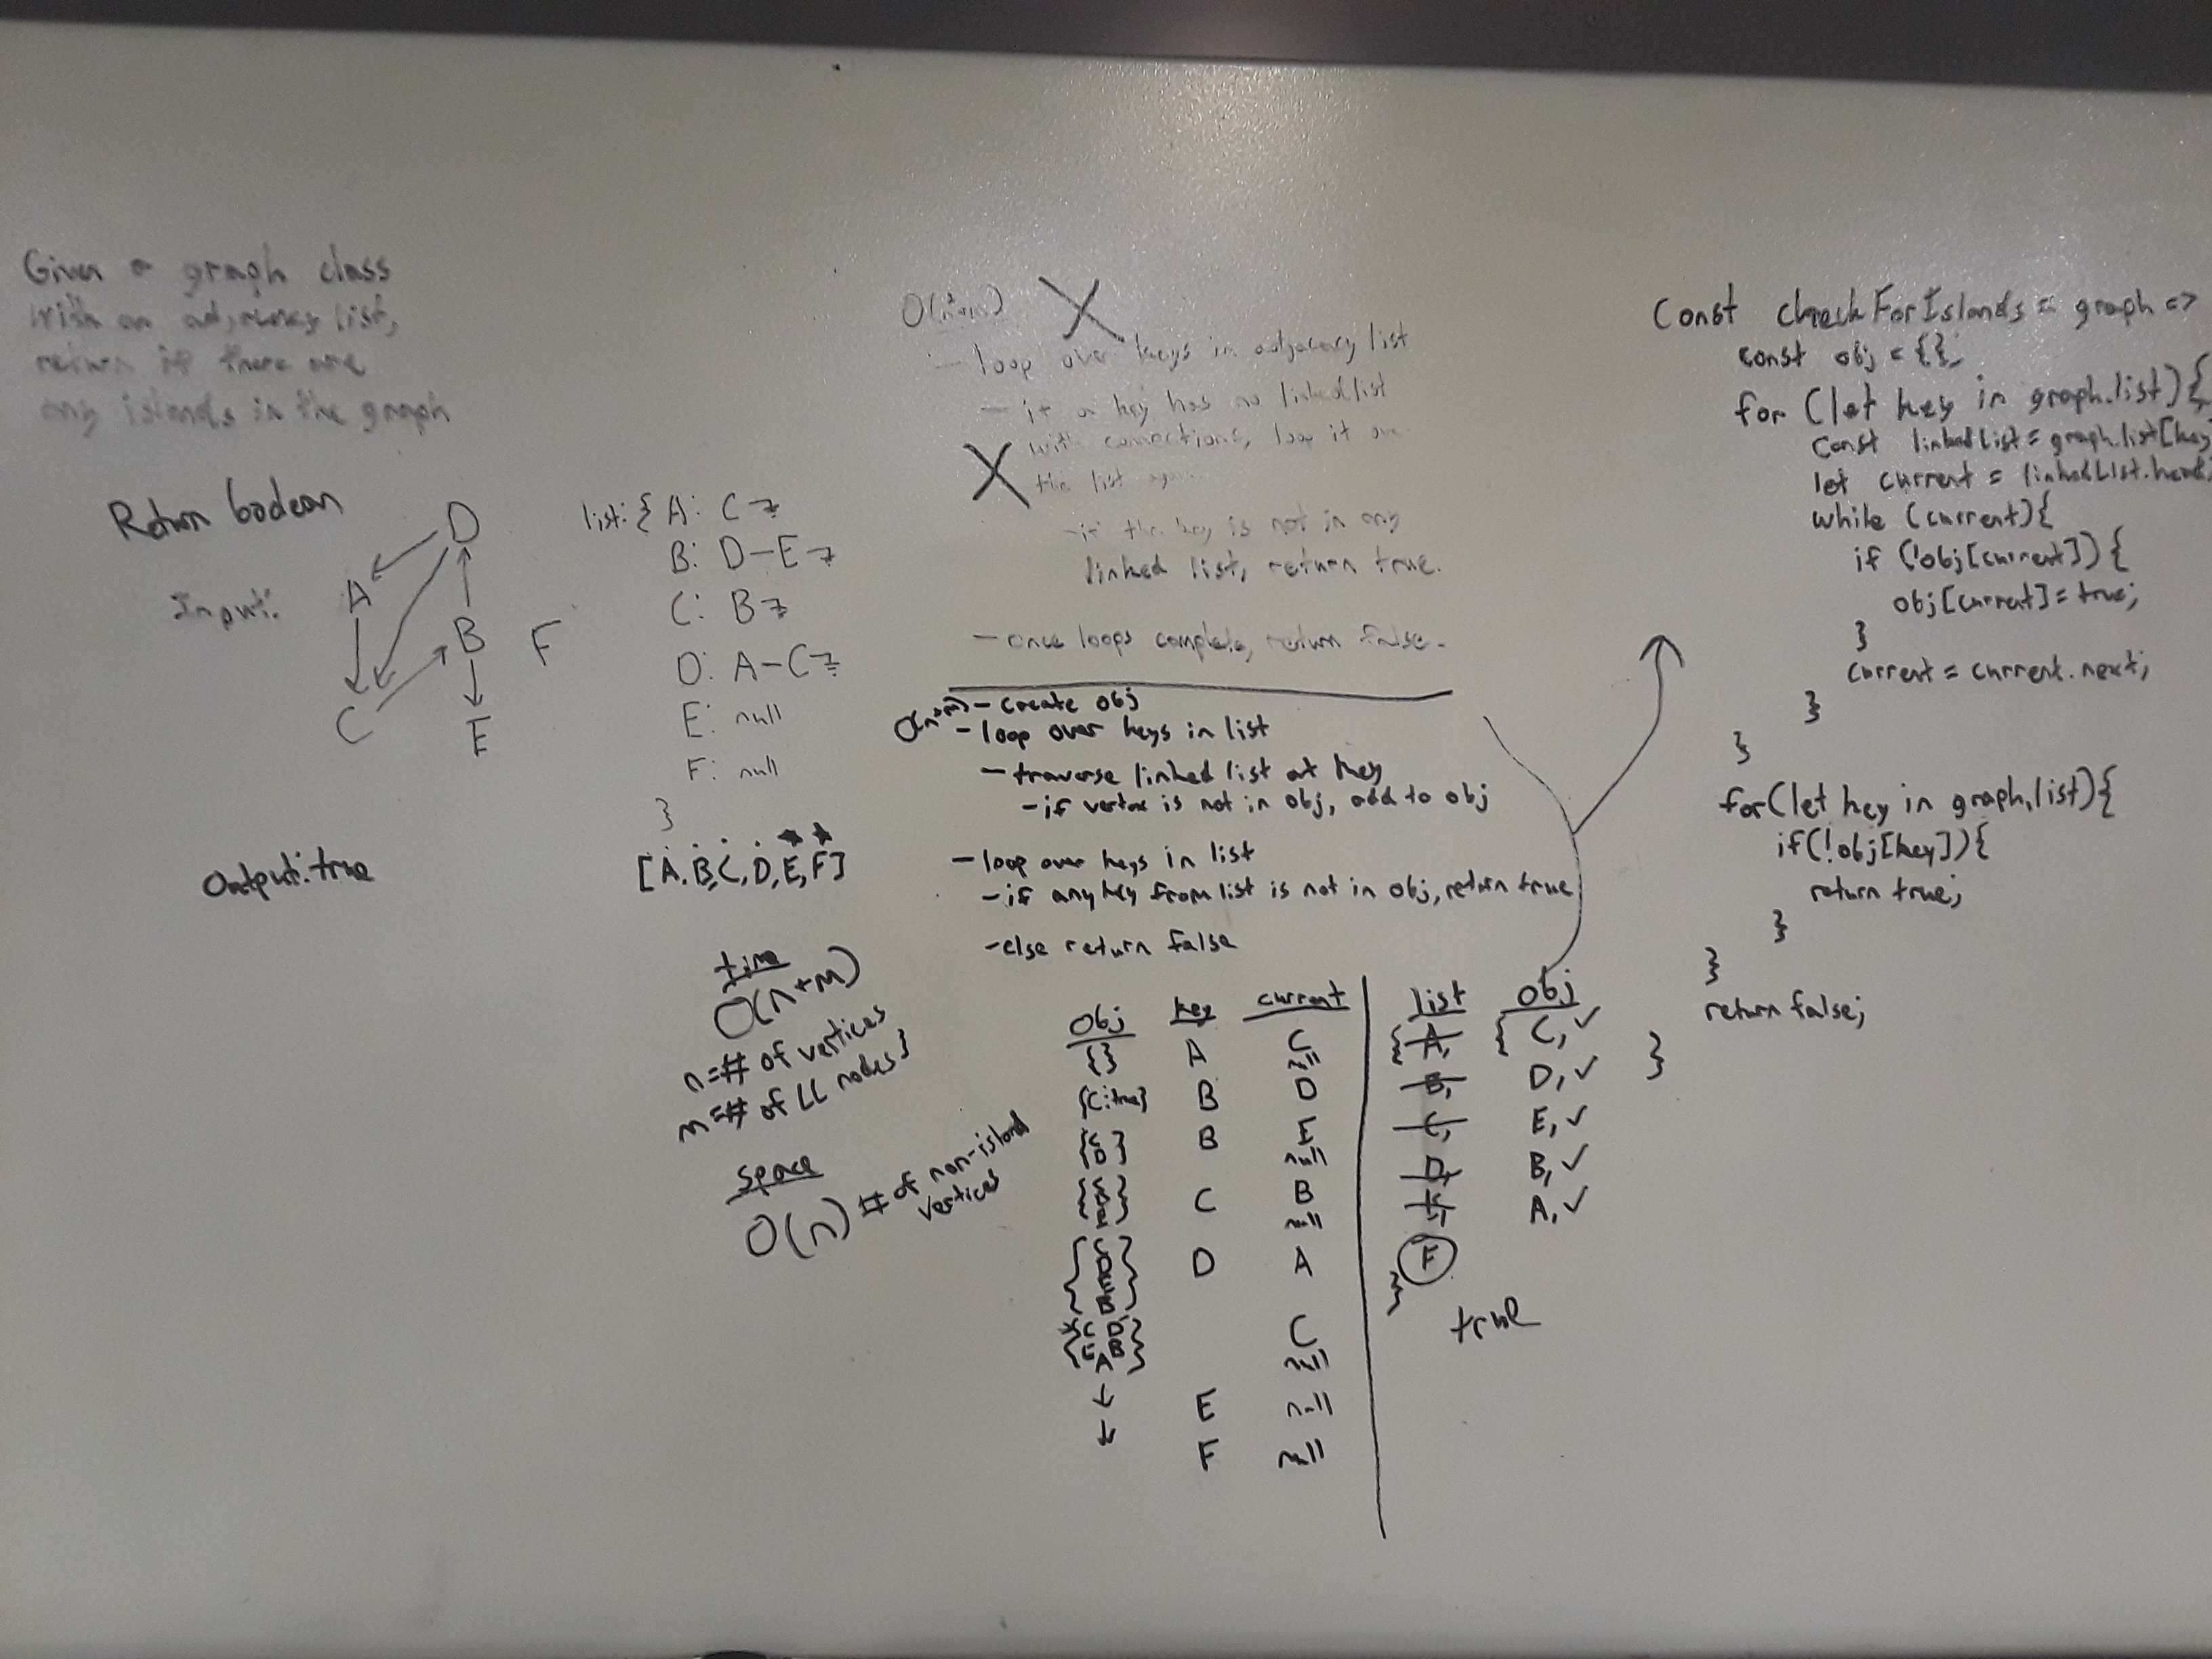 Given a graph class
with an adjacency list,
return if there are
any islands in the graph
Return boolean
Input:
D
A
B
F
C
E
Output: true
list: { A: C
B: D-E
C: B
D: A-C
E: null
F: null
}
[A, B, C, D, E, F]
time
O(n+m)
n=# of vertices
m=# of LL nodes
space
O(n) # of non-island
vertices
X
- loop over keys in adjacency list
- if a key has no linked list
with connections, loop it on
X
the list again
- if the key is not in any
linked list, return true.
- once loops complete, return false.
- create obj
- loop over keys in list
- traverse linked list at key
- if vertex is not in obj, add to obj
- loop over keys in list
- if any key from list is not in obj, return true
- else return false
Obj key current
{} A C
null
{C:true} B D
{C D} B E
null
C B
null
D A
{C D E B A} C
null
↓ E null
↓ F null
list obj
{ A, { C, ✓
B, D, ✓
C, E, ✓
D, B, ✓
E, A, ✓
F
}
true
Const checkForIslands = graph =>
const obj = {};
for (let key in graph.list){
const linkedList = graph.list[key
let current = linkedList.head;
while (current){
if (!obj[current]){
obj[current]=true;
}
current = current.next;
}
}
for(let key in graph.list){
if(!obj[key]){
return true;
}
}
return false;
}